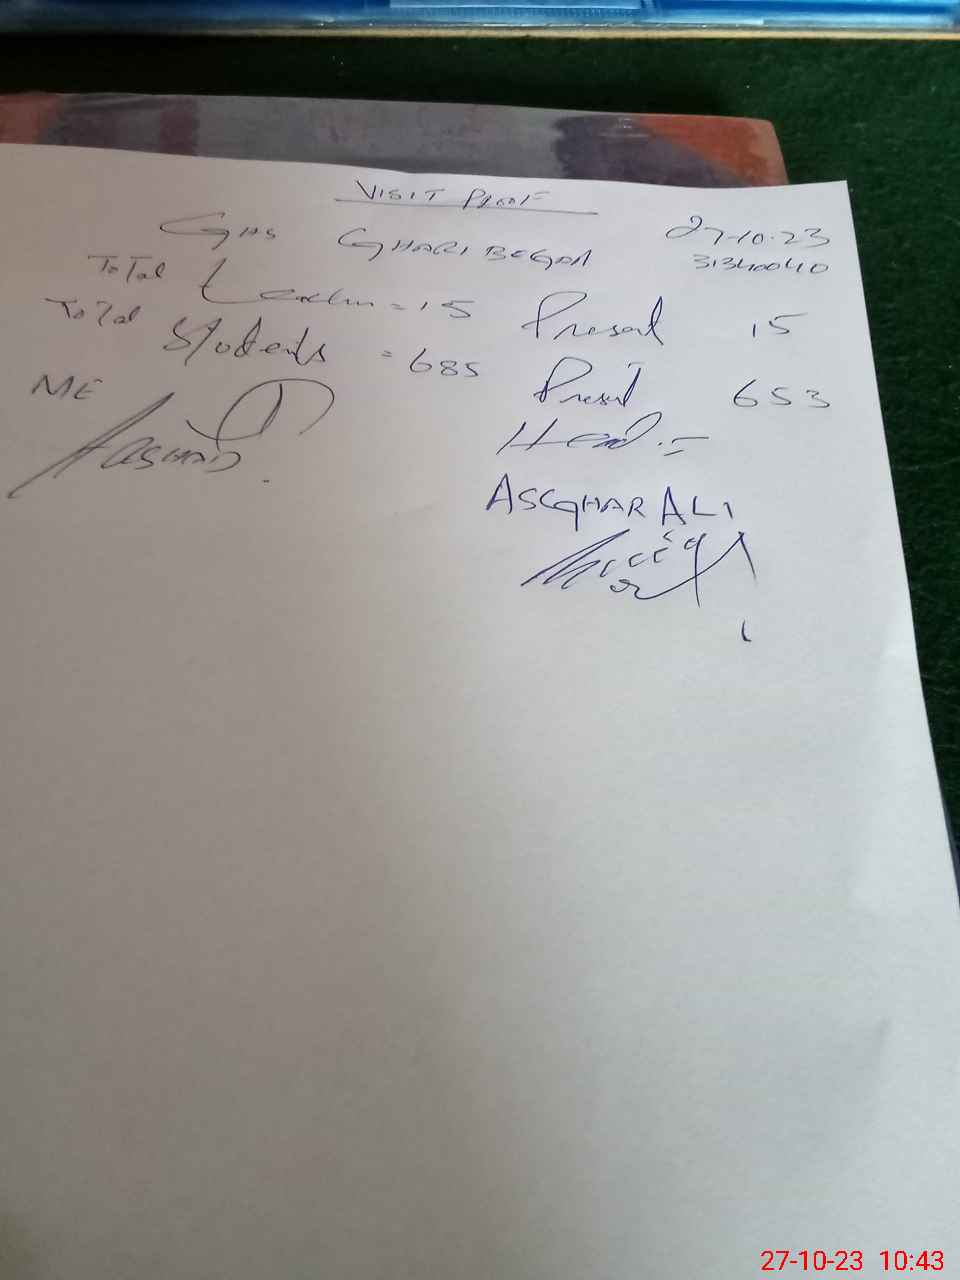 VISIT PROOF
GHS GHARI BEGAR 27-10-23
31340040
Total Teachers = 15 Present 15
Total Students = 685 Present 653
ME Head :=
ASGHAR ALI
27-10-23 10:43